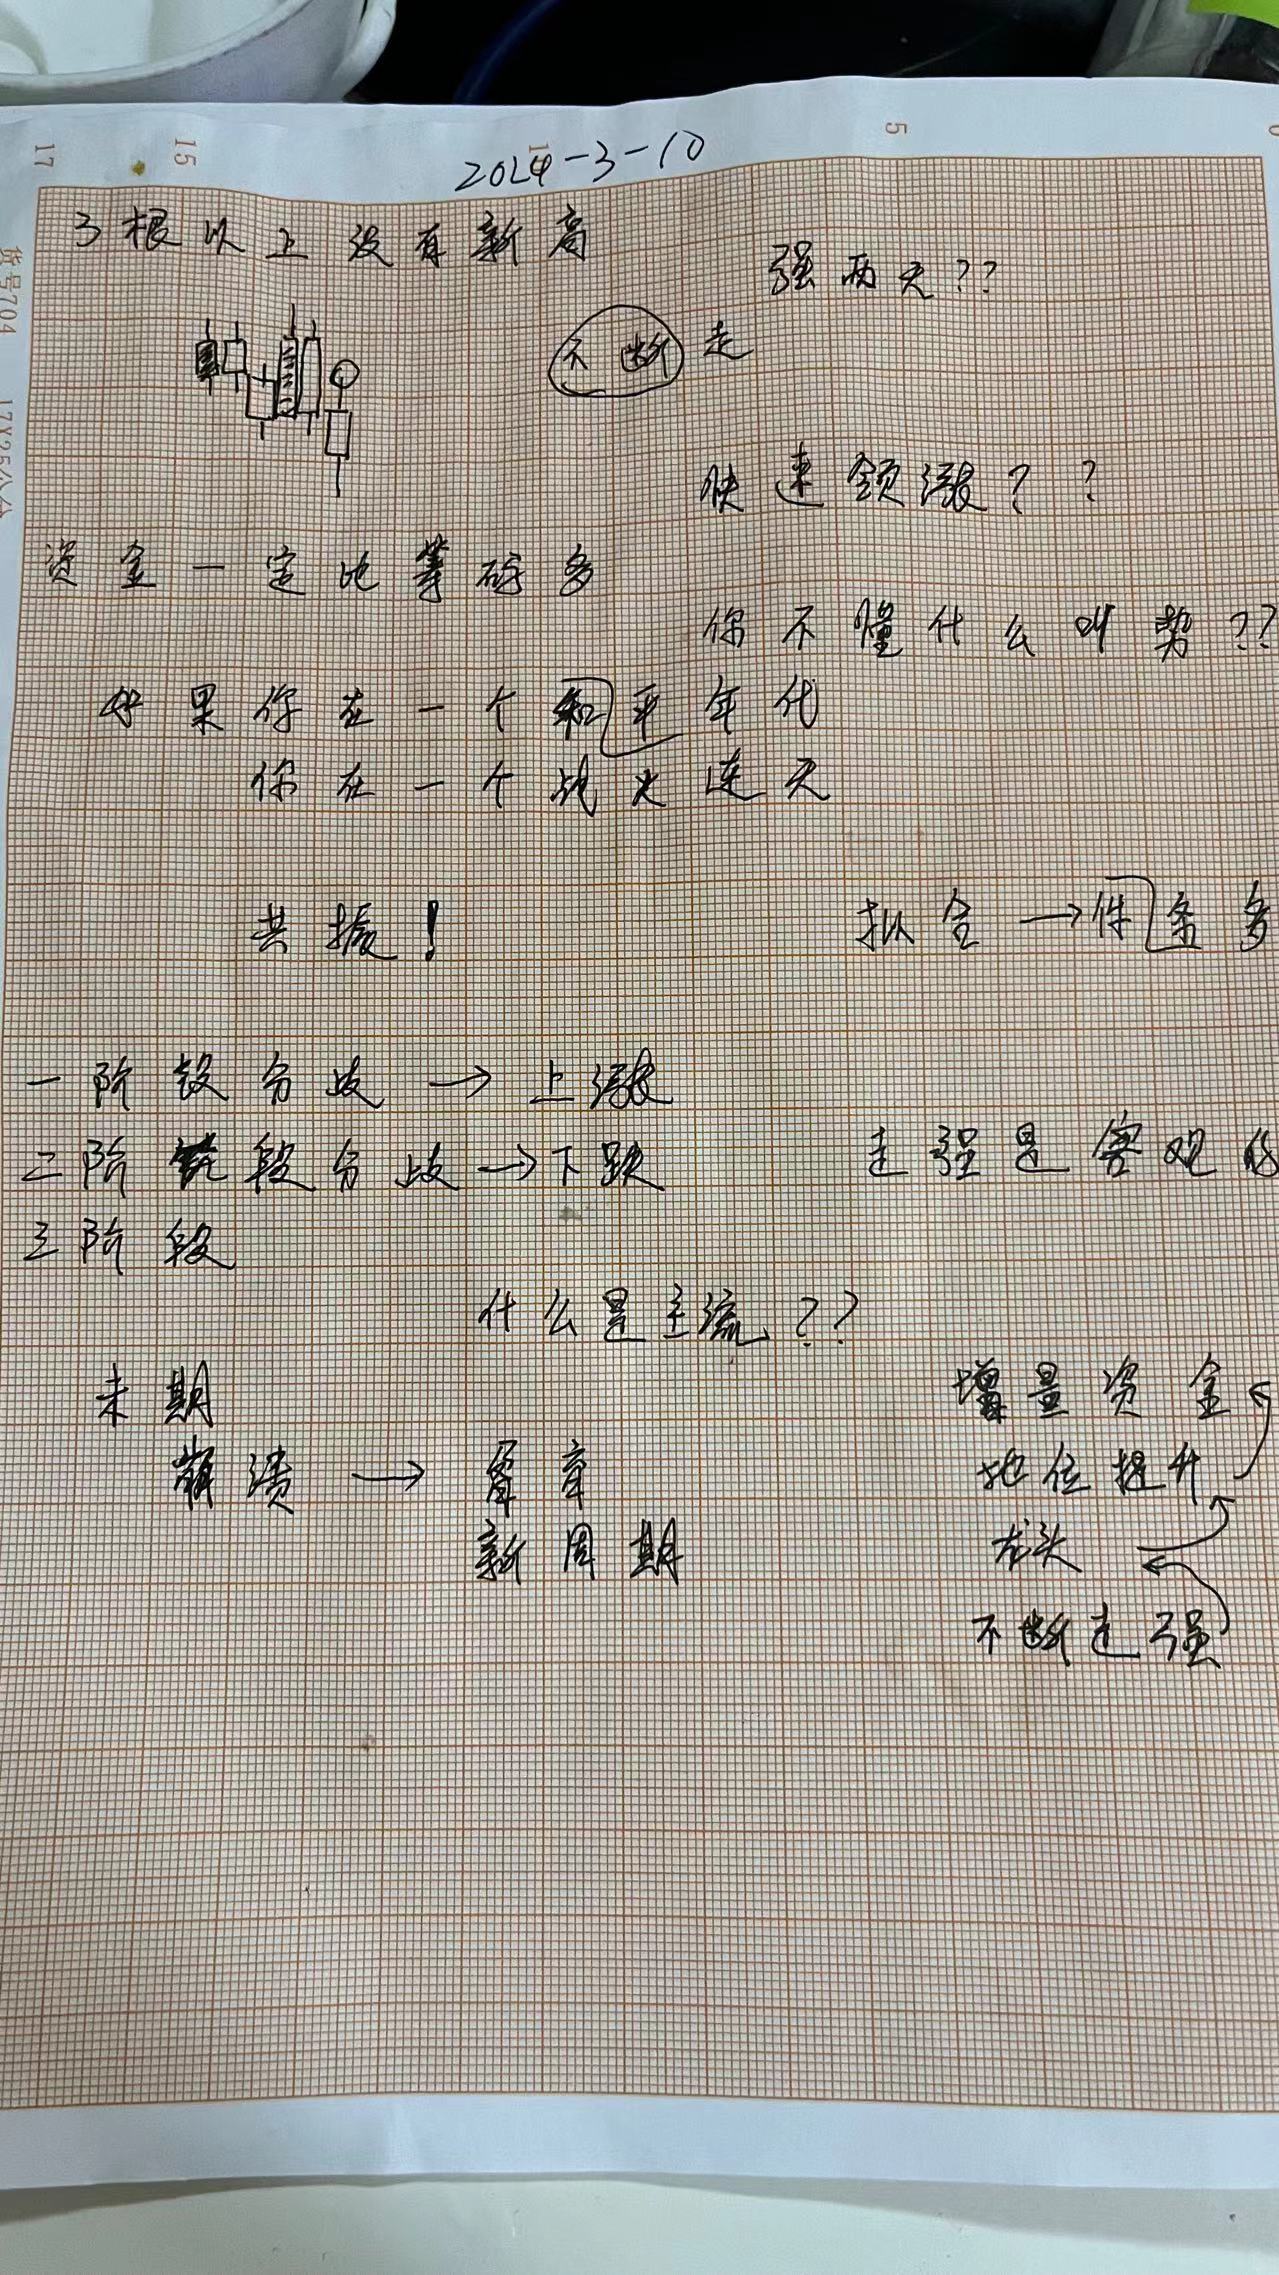 17 15 5
2024-3-10
3根以上没有新高
强两天??
不断走
快速领涨??
货号704 17X25公分
资金一定比筹码多
你不懂什么叫势??
如果你在一个和平年代
你在一个战火连天
共振!
拟合→件条多
一阶段分歧→上涨
二阶段分歧→下跌
走强是客观的
三阶段
什么是主流??
末期
增量资金
崩溃→
地位提升
新周期
龙头
不断走强